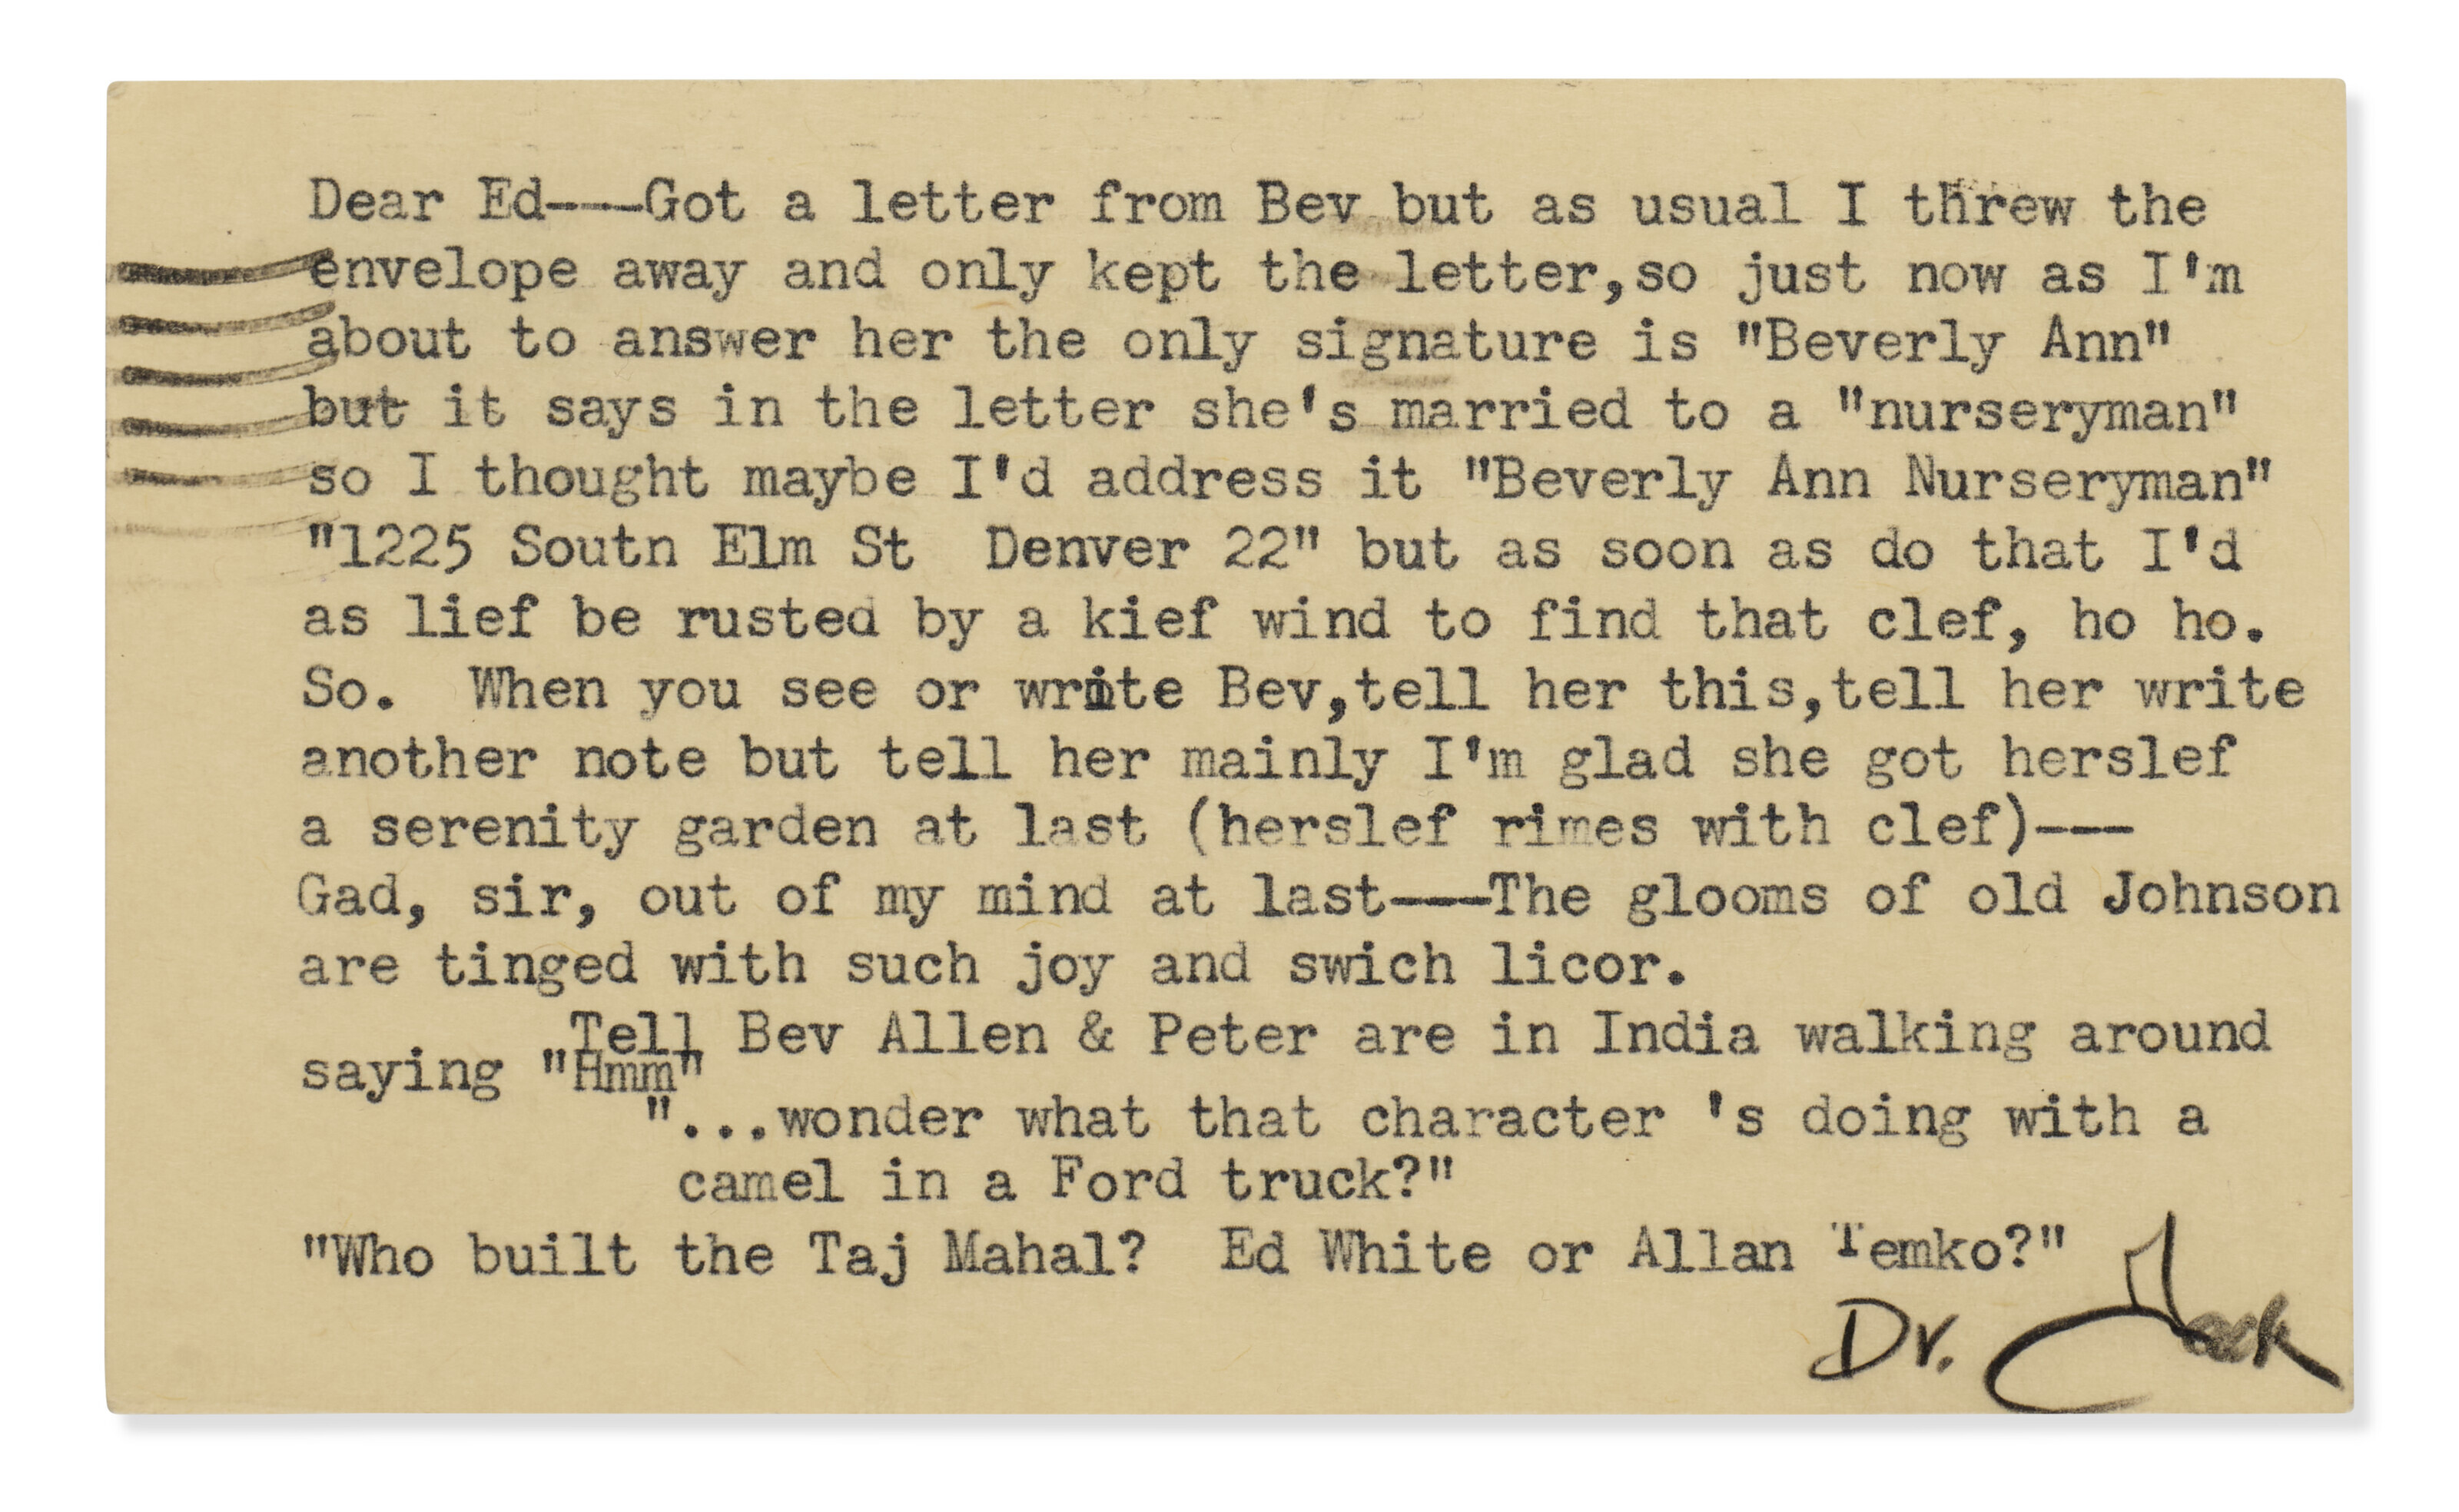 Dear Ed---Got a letter from Bev but as usual I threw the
envelope away and only kept the letter,so just now as I'm
about to answer her the only signature is "Beverly Ann"
but it says in the letter she's married to a "nurseryman"
so I thought maybe I'd address it "Beverly Ann Nurseryman"
"1225 Soutn Elm St  Denver 22" but as soon as do that I'd
as lief be rusted by a kief wind to find that clef, ho ho.
So.  When you see or write Bev,tell her this,tell her write
another note but tell her mainly I'm glad she got herslef
a serenity garden at last (herslef rimes with clef)---
Gad, sir, out of my mind at last---The glooms of old Johnson
are tinged with such joy and swich licor.
Tell Bev Allen & Peter are in India walking around
saying "Hmm"
"...wonder what that character 's doing with a
camel in a Ford truck?"
"Who built the Taj Mahal?  Ed White or Allan Temko?"
Dr. Jack